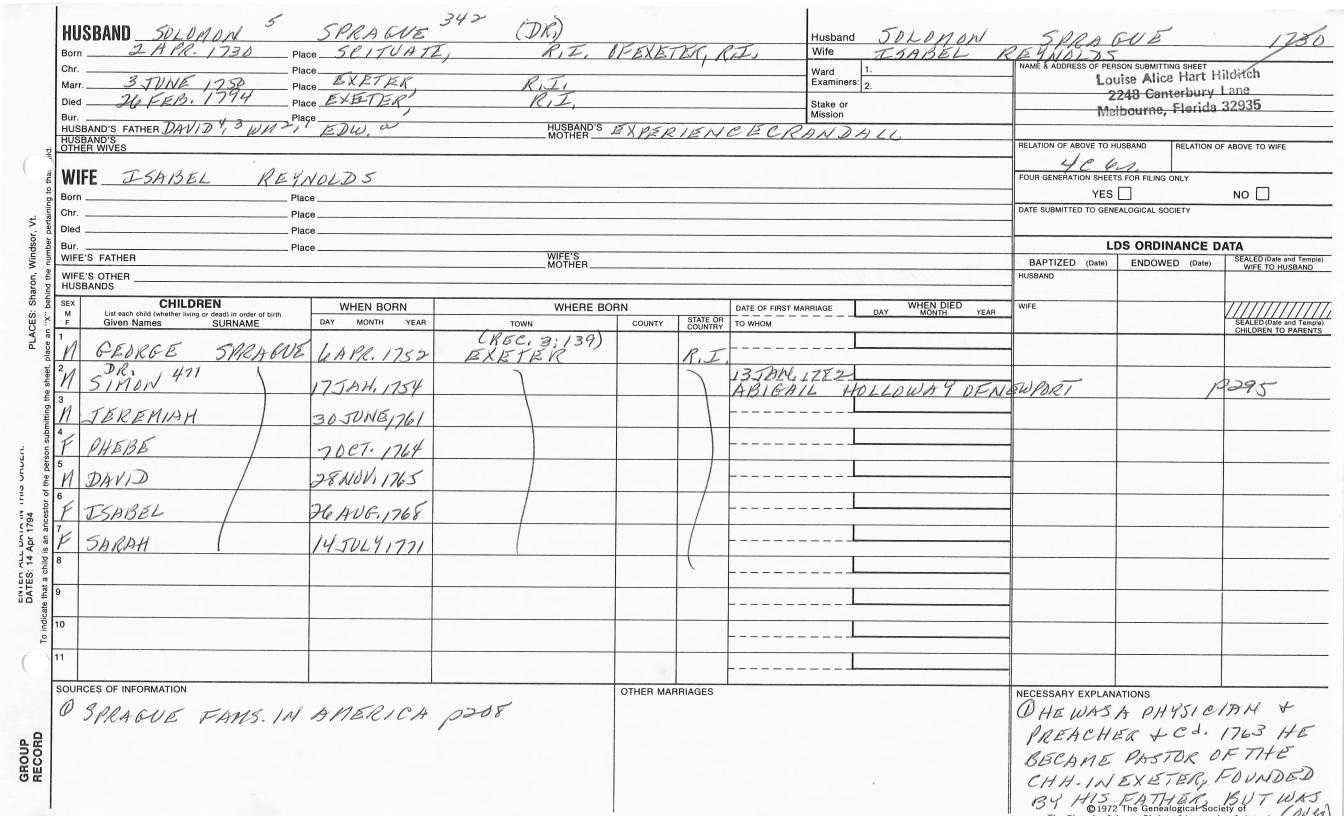 HUSBAND SOLOMON 5 SPRAGUE 342 (DR.)
Born 2 APR. 1730 Place SCITUATE, R.I. OF EXETER, R.I.
Chr. Place
Marr. 3 JUNE 1750 Place EXETER, R.I.
Died 26 FEB. 1794 Place EXETER, R.I.
Bur. Place
HUSBAND'S FATHER DAVID 4, 3 WM 2, 1 EDW. HUSBAND'S MOTHER EXPERIENCE CRANDALL
HUSBAND'S OTHER WIVES
Husband SOLOMON SPRAGUE 1730
Wife ISABEL REYNOLDS
Ward Examiners: 1.
2.
Stake or Mission
NAME & ADDRESS OF PERSON SUBMITTING SHEET
Louise Alice Hart Hilditch
2248 Canterbury Lane
Melbourne, Florida 32935
RELATION OF ABOVE TO HUSBAND RELATION OF ABOVE TO WIFE
4C 6r.
FOUR GENERATION SHEETS FOR FILING ONLY
YES NO
DATE SUBMITTED TO GENEALOGICAL SOCIETY
WIFE ISABEL REYNOLDS
Born Place
Chr. Place
Died Place
Bur. Place
WIFE'S FATHER WIFE'S MOTHER
WIFE'S OTHER HUSBANDS
LDS ORDINANCE DATA
BAPTIZED (Date) ENDOWED (Date) SEALED (Date and Temple) WIFE TO HUSBAND
HUSBAND
WIFE
SEALED (Date and Temple) CHILDREN TO PARENTS
SEX M F CHILDREN WHEN BORN WHERE BORN DATE OF FIRST MARRIAGE WHEN DIED
List each child (whether living or dead) in order of birth
Given Names SURNAME DAY MONTH YEAR TOWN COUNTY STATE OR COUNTRY TO WHOM DAY MONTH YEAR
(REC. 3:139)
1 M GEORGE SPRAGUE 6 APR. 1752 EXETER R.I.
2 DR. 13 JAN. 1782
M SIMON 471 17 JAN. 1754 ABIGAIL HOLLOWAY OF NEWPORT p295
3 M JEREMIAH 30 JUNE, 1761
4 F PHEBE 7 OCT. 1764
5 M DAVID 28 NOV. 1765
6 F ISABEL 26 AUG. 1768
7 F SARAH 14 JULY 1771
8
9
10
11
SOURCES OF INFORMATION
① SPRAGUE FAMS. IN AMERICA p208
OTHER MARRIAGES
NECESSARY EXPLANATIONS
① HE WAS A PHYSICIAN &
PREACHER & Cd. 1763 HE
BECAME PASTOR OF THE
CHH. IN EXETER, FOUNDED
BY HIS FATHER, BUT WAS
©1972 The Genealogical Society of
(over)
PLACES: Sharon, Windsor, Vt.
ENTER ALL DATA IN THIS ORDER:
DATES: 14 Apr 1794
To indicate that a child is an ancestor of the person submitting the sheet, place an "X" behind the number pertaining to that child.
GROUP RECORD